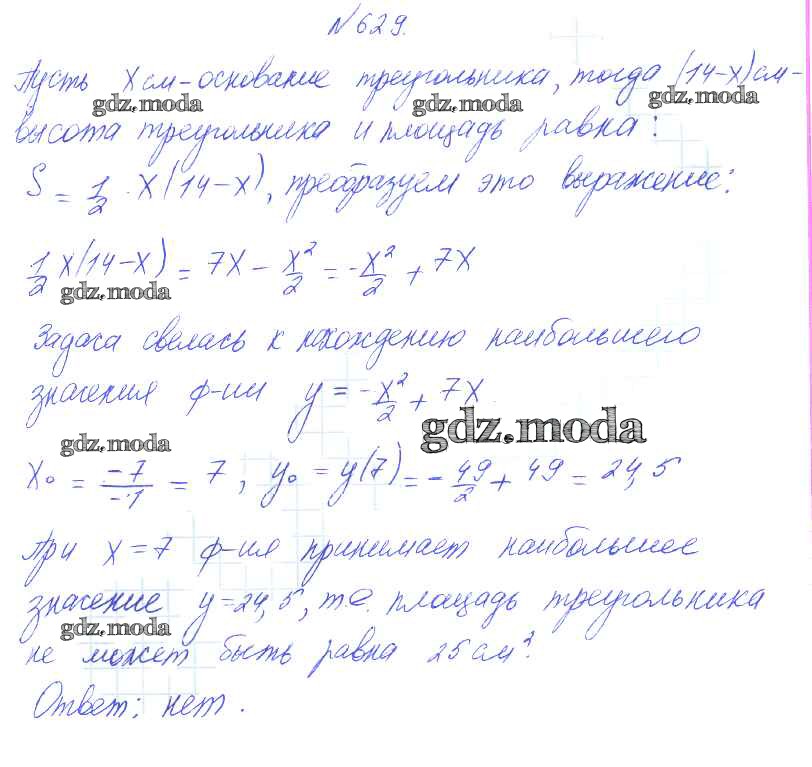 №629.
Пусть x см-основание треугольника, тогда (14-x) см-
gdz.moda gdz.moda gdz.moda
высота треугольника и площадь равна:
S = 1/2 · x(14-x), преобразуем это выражение:
1/2 x(14-x) = 7x - x²/2 = -x²/2 + 7x
gdz.moda
Задача свелась к нахождению наибольшего
значения ф-ии y = -x²/2 + 7x
gdz.moda
gdz.moda
x₀ = -7/-1 = 7, y₀ = y(7) = -49/2 + 49 = 24,5
При x=7 ф-ия принимает наибольшее
значение y=24,5, т.е. площадь треугольника
gdz.moda
не может быть равна 25 см².
Ответ: нет.